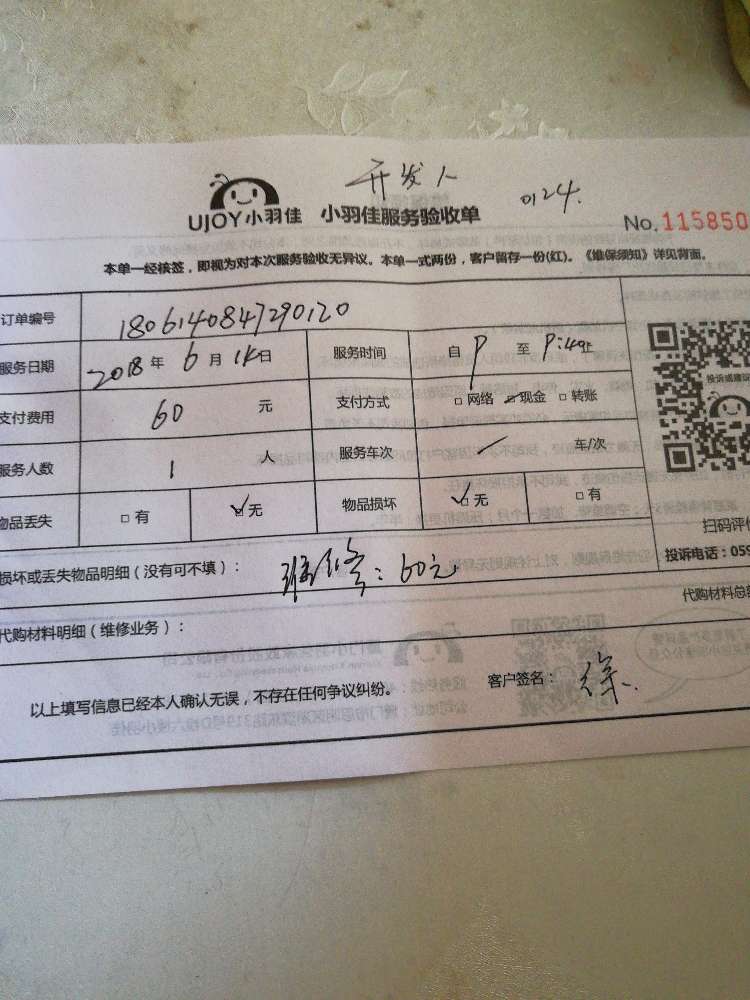 开发人
0124.
UJOY小羽佳 小羽佳服务验收单
No.115850
本单一经核签，即视为对本次服务验收无异议。本单一式两份，客户留存一份(红)。《维保须知》详见背面。
订单编号 1806140847290120
服务日期 2018 年 6 月 14日 服务时间 自 至 :40止
支付费用 60 元 支付方式 □网络 ☑现金 □转账
服务人数 1 人 服务车次 / 车/次
物品丢失 □有 ☑无 物品损坏 ☑无 □有
扫码评价
投诉电话：059
损坏或丢失物品明细（没有可不填）： ：60元
代购材料总额
代购材料明细（维修业务）：
以上填写信息已经本人确认无误，不存在任何争议纠纷。 客户签名： 徐.